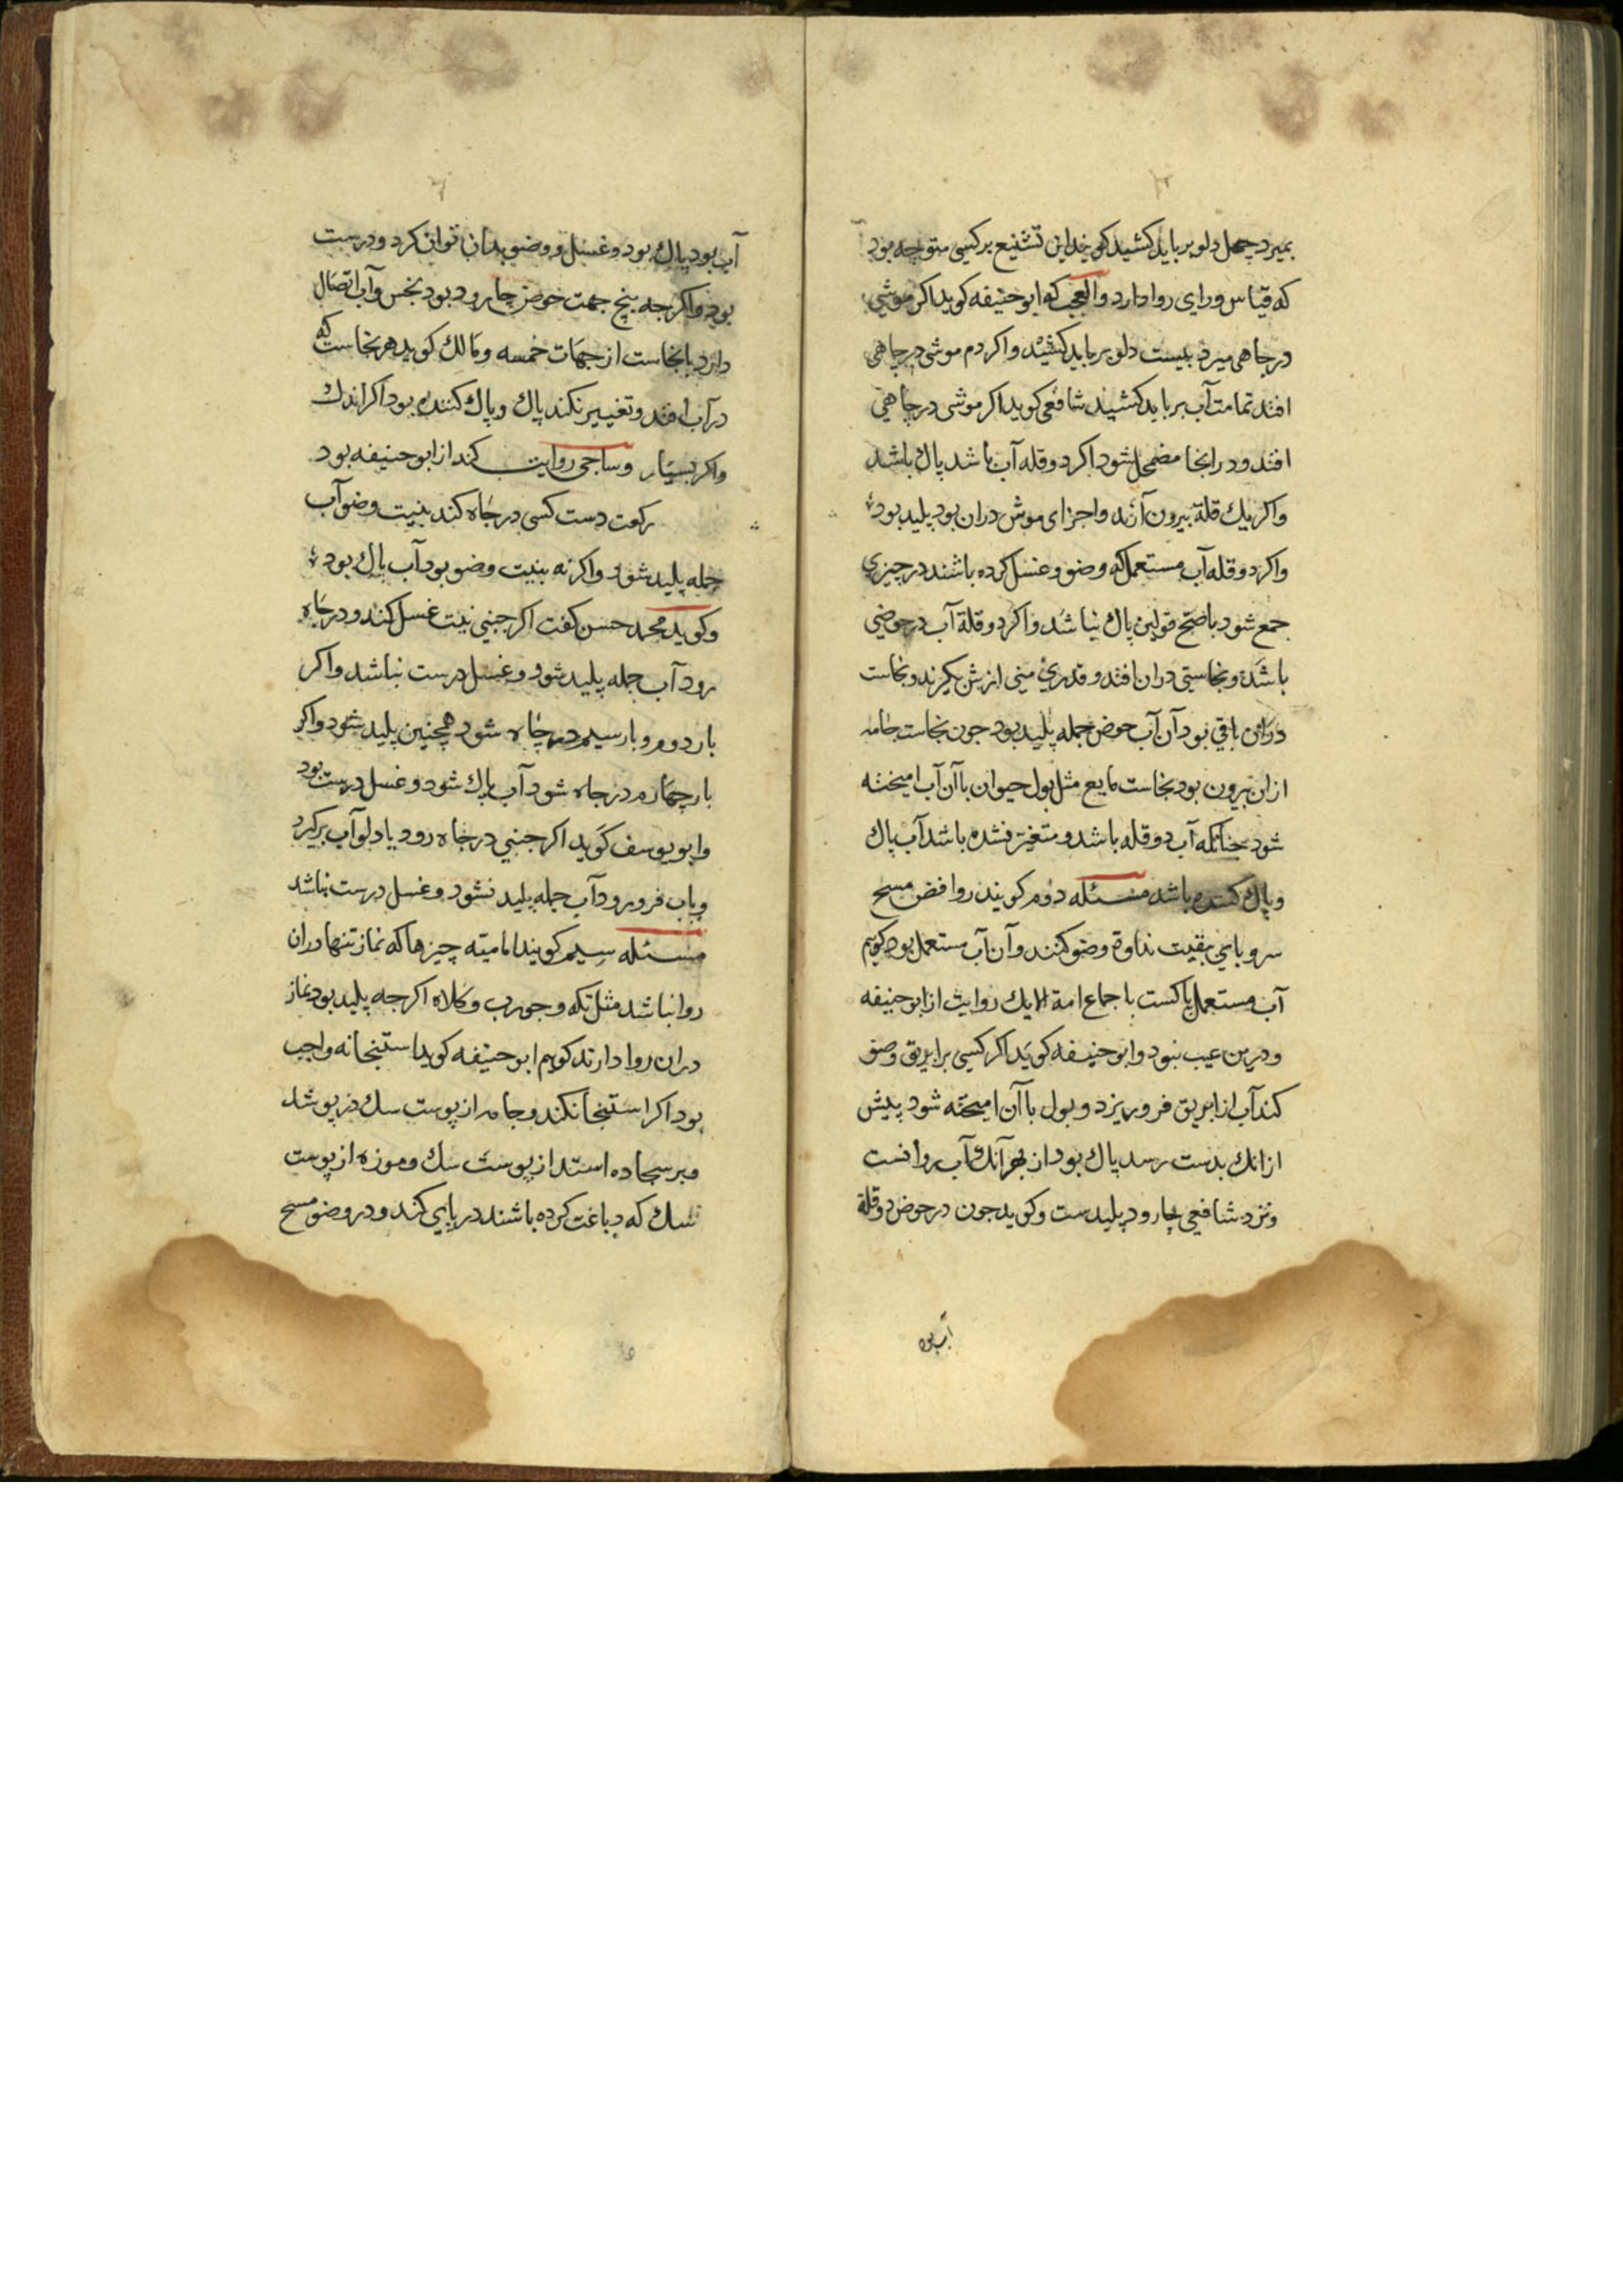 بمیرد چهل دلو برباید کشید کویند این تشنیع برکسی متوجه بود
که قیاس ورای روا دارد والعجب که ابوحنیفه کوید اکر موشی
در چاهی میرد بیست دلو برباید کشید واکر دم موشی در چاهی
افتد تمامت آب برباید کشید شافعی کوید اکر موشی در چاهی
افتد ودر انجا مضمحل شود اکر دو قله آب باشد پاك باشد
واکر یك قلة بیرون آرند واجزای موش دران بود پلید بود
واکر دو قله آب مستعمل که وضو وغسل کرده باشند در چیزی
جمع شود باصح قولین پاك نباشد واکر دو قلة آب در حوضی
باشد ونجاستی دران افتد وقدری منی ازش بکیرند ونجاست
دران باقی بود آن آب حوض جمله پلید بود جون نجاست جامد
ازان بیرون بود نجاست مایع مثل بول حیوان باآن آب امیخته
شود جنانکه آب دو قله باشد ومتغیر نشده باشد آب پاك
وپاك کننده باشد مسئله دوم کویند روافض مسح
سر وپای ببقیت نداوة وضو کنند وآن آب مستعمل بود کویم
آب مستعمل پاکست باجماع امة الا یك روایت از ابوحنیفه
ودرین عیب نبود وابو حنیفه کوید اکر کسی برابریق وضو
کند آب از ابریق فرو ریزد وبول باآن امیخته شود پیش
ازانك بدست رسد پاك بود از بهر آنك آب روانست
ونزد شافعی جارود پلیدست وکوید جون در حوض دو قلة
آب بود
آب بود پاك بود وغسل ووضو بدان توان کرد ودرست
بود واکر جه پنج جهت حوض جارود بود نجس وآب اتصال
دارد بانجاست از جهات خمسه ومالك کوید هر نجاست که
در آب افتد وتغییر نکند پاك وپاك کننده بود اکر اندك
واکر بسیار وساجی روایت کند از ابوحنیفه بود
کفت دست کسی در جاه کند بنیت وضو آب
جمله پلید شود واکر نه بنیت وضو بود آب پاك بود
وکوید محمد حسن کفت اکر جنبی نیت غسل کند ودر جاه
رود آب جمله پلید شود وغسل درست نباشد واکر
بار دوم وبار سیم در جاه شود همچنین پلید شود واکر
بار چهارم در جاه شود آب پاك شود وغسل درست بود
وابو یوسف کوید اکر جنبی در جاه رود یا دلو آب برکیرد
وباب فرو رود آب جمله پلید نشود وغسل درست نباشد
مسئله سیم کویند امامیته چیزها که نماز تنها دران
روا نباشد مثل تکه وجورب وکلاه اکر جه پلید بود نماز
دران روا دارند کویم ابو حنیفه کوید استنجا نه واجب
بود اکر استنجا نکند وجامه از پوست سك در پوشد
وبر سجاده استد از پوست سك وموزه از پوست
سك که دباغت کرده باشند در پای کند ودر وضو مسح